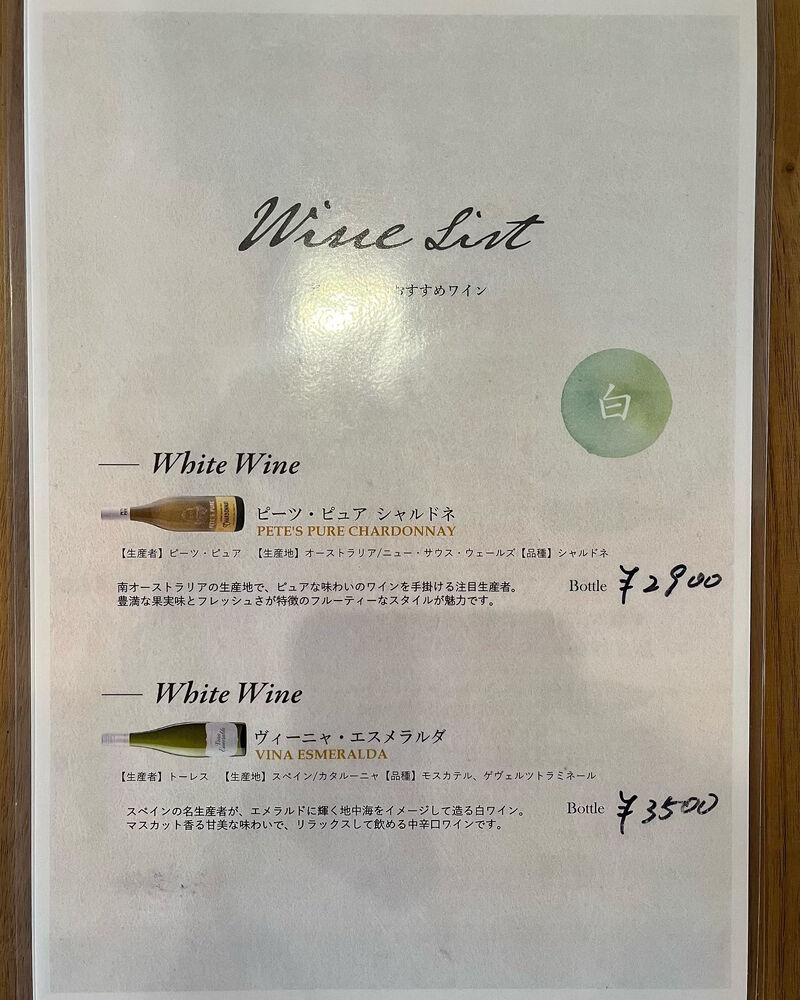 Wine List
おすすめワイン
白
White Wine
ピーツ・ピュア シャルドネ
PETE'S PURE CHARDONNAY
【生産者】ピーツ・ピュア 【生産地】オーストラリア/ニュー・サウス・ウェールズ【品種】シャルドネ
南オーストラリアの生産地で、ピュアな味わいのワインを手掛ける注目生産者。
豊満な果実味とフレッシュさが特徴のフルーティーなスタイルが魅力です。
Bottle ¥2900
White Wine
ヴィーニャ・エスメラルダ
VINA ESMERALDA
【生産者】トーレス 【生産地】スペイン/カタルーニャ【品種】モスカテル、ゲヴェルツトラミネール
スペインの名生産者が、エメラルドに輝く地中海をイメージして造る白ワイン。
マスカット香る甘美な味わいで、リラックスして飲める中辛口ワインです。
Bottle ¥3500